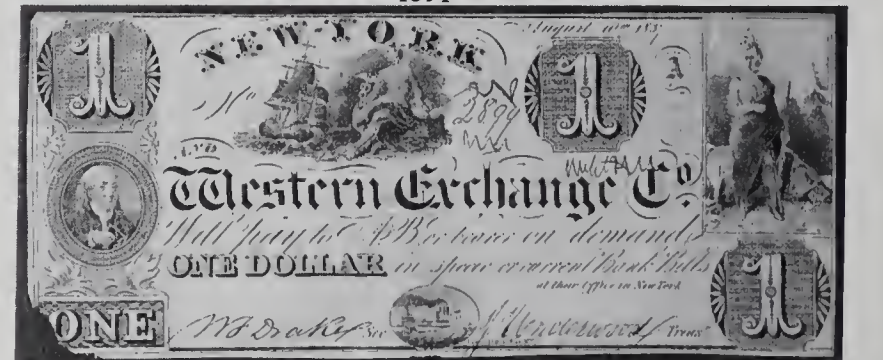 1
NEW-YORK
August
1
A
No
2899
AND
Western Exchange Co
Will pay to or bearer on demand
ONE DOLLAR in specie or current Bank Bills
at their Office in New York
1
ONE
Drake Sec
Underwood Treas